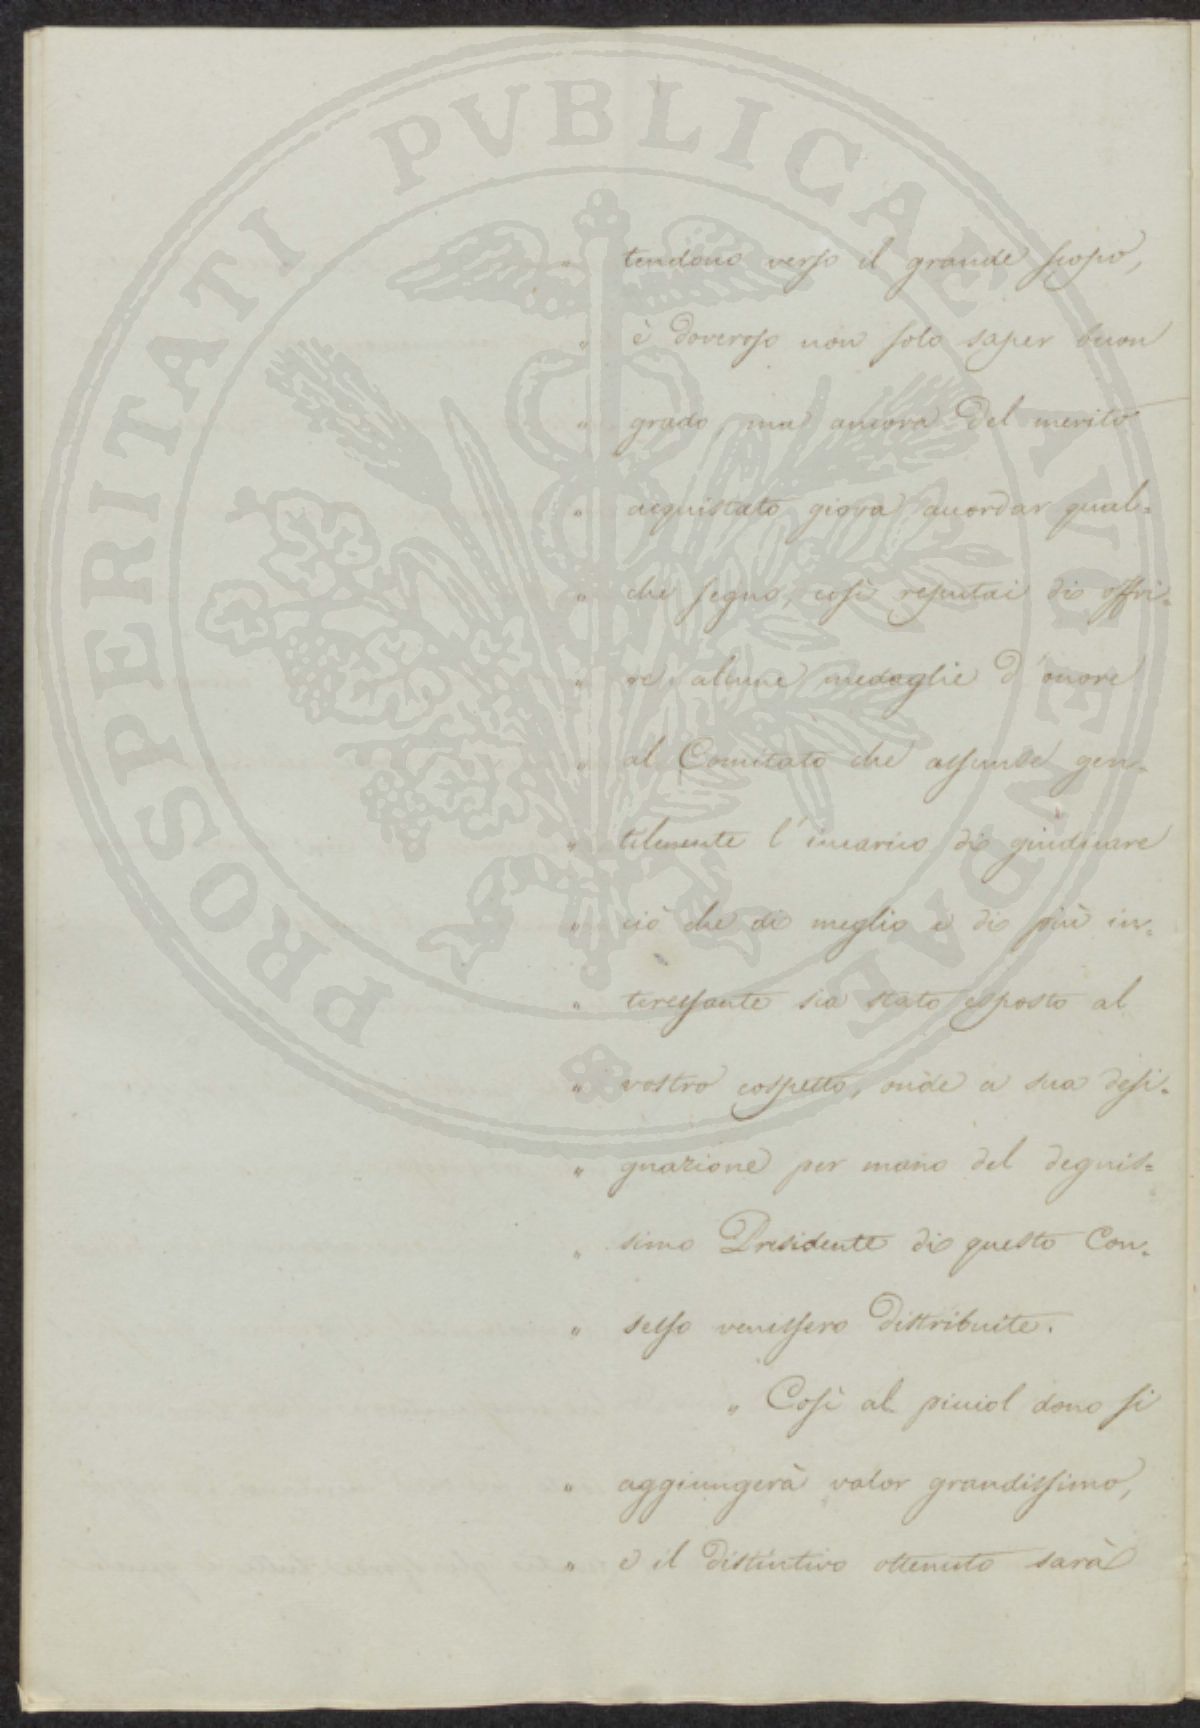 PROSPERITATI PVBLICAE AVGENDAE
„ tendono verso il grande scopo,
„ è doveroso non solo saper buon
„ grado, ma ancora del merito
„ acquistato giova accordar qual=
„ che segno, così reputai di offri=
„ re alcune medaglie d'onore
„ al Comitato che assunse gen=
„ tilmente l'incarico di giudicare
„ ciò che di meglio e di più in=
„ teressante sia stato esposto al
„ vostro cospetto, onde a sua desi=
„ gnazione per mano del degnis=
„ simo Presidente di questo Con=
„ sesso venissero distribuite.
„ Così al picciol dono si
„ aggiungerà valor grandissimo,
„ e il distintivo ottenuto sarà